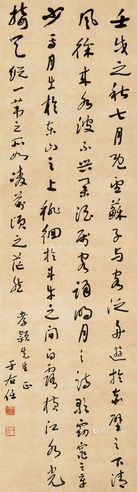 壬戌之秋七月既望蘇子與客泛舟遊於赤壁之下清
風徐來水波不興舉酒屬客誦明月之詩歌窈窕之章
少焉月出於東山之上徘徊於斗牛之間白露橫江水光
接天縱一葦之所如凌萬頃之茫然 孝穎先生正
于右任